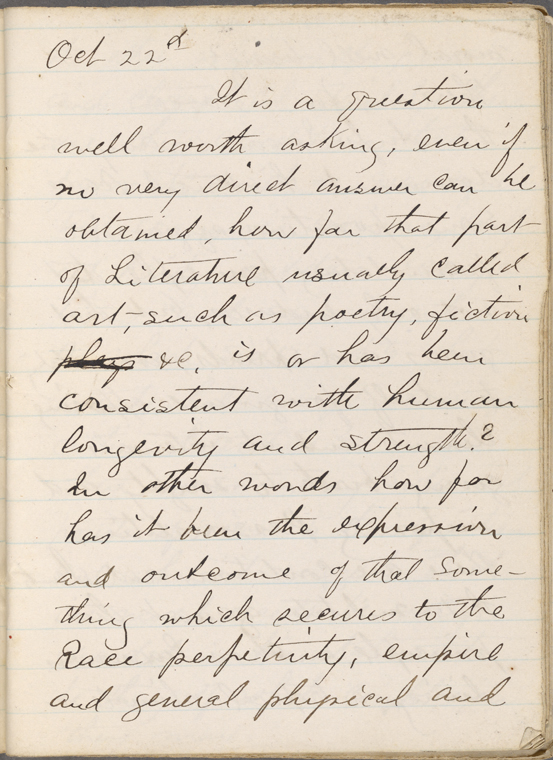 Oct 22d
It is a question
well worth asking, even if
no very direct answer can be
obtained, how far that part
of Literature usually called
art, such as poetry, fiction
plays &c, is or has been
consistent with human
longevity and strength?
In other words how far
has it been the expression
and outcome of that some-
thing which secures to the
Race perpetuity, empire
and general physical and